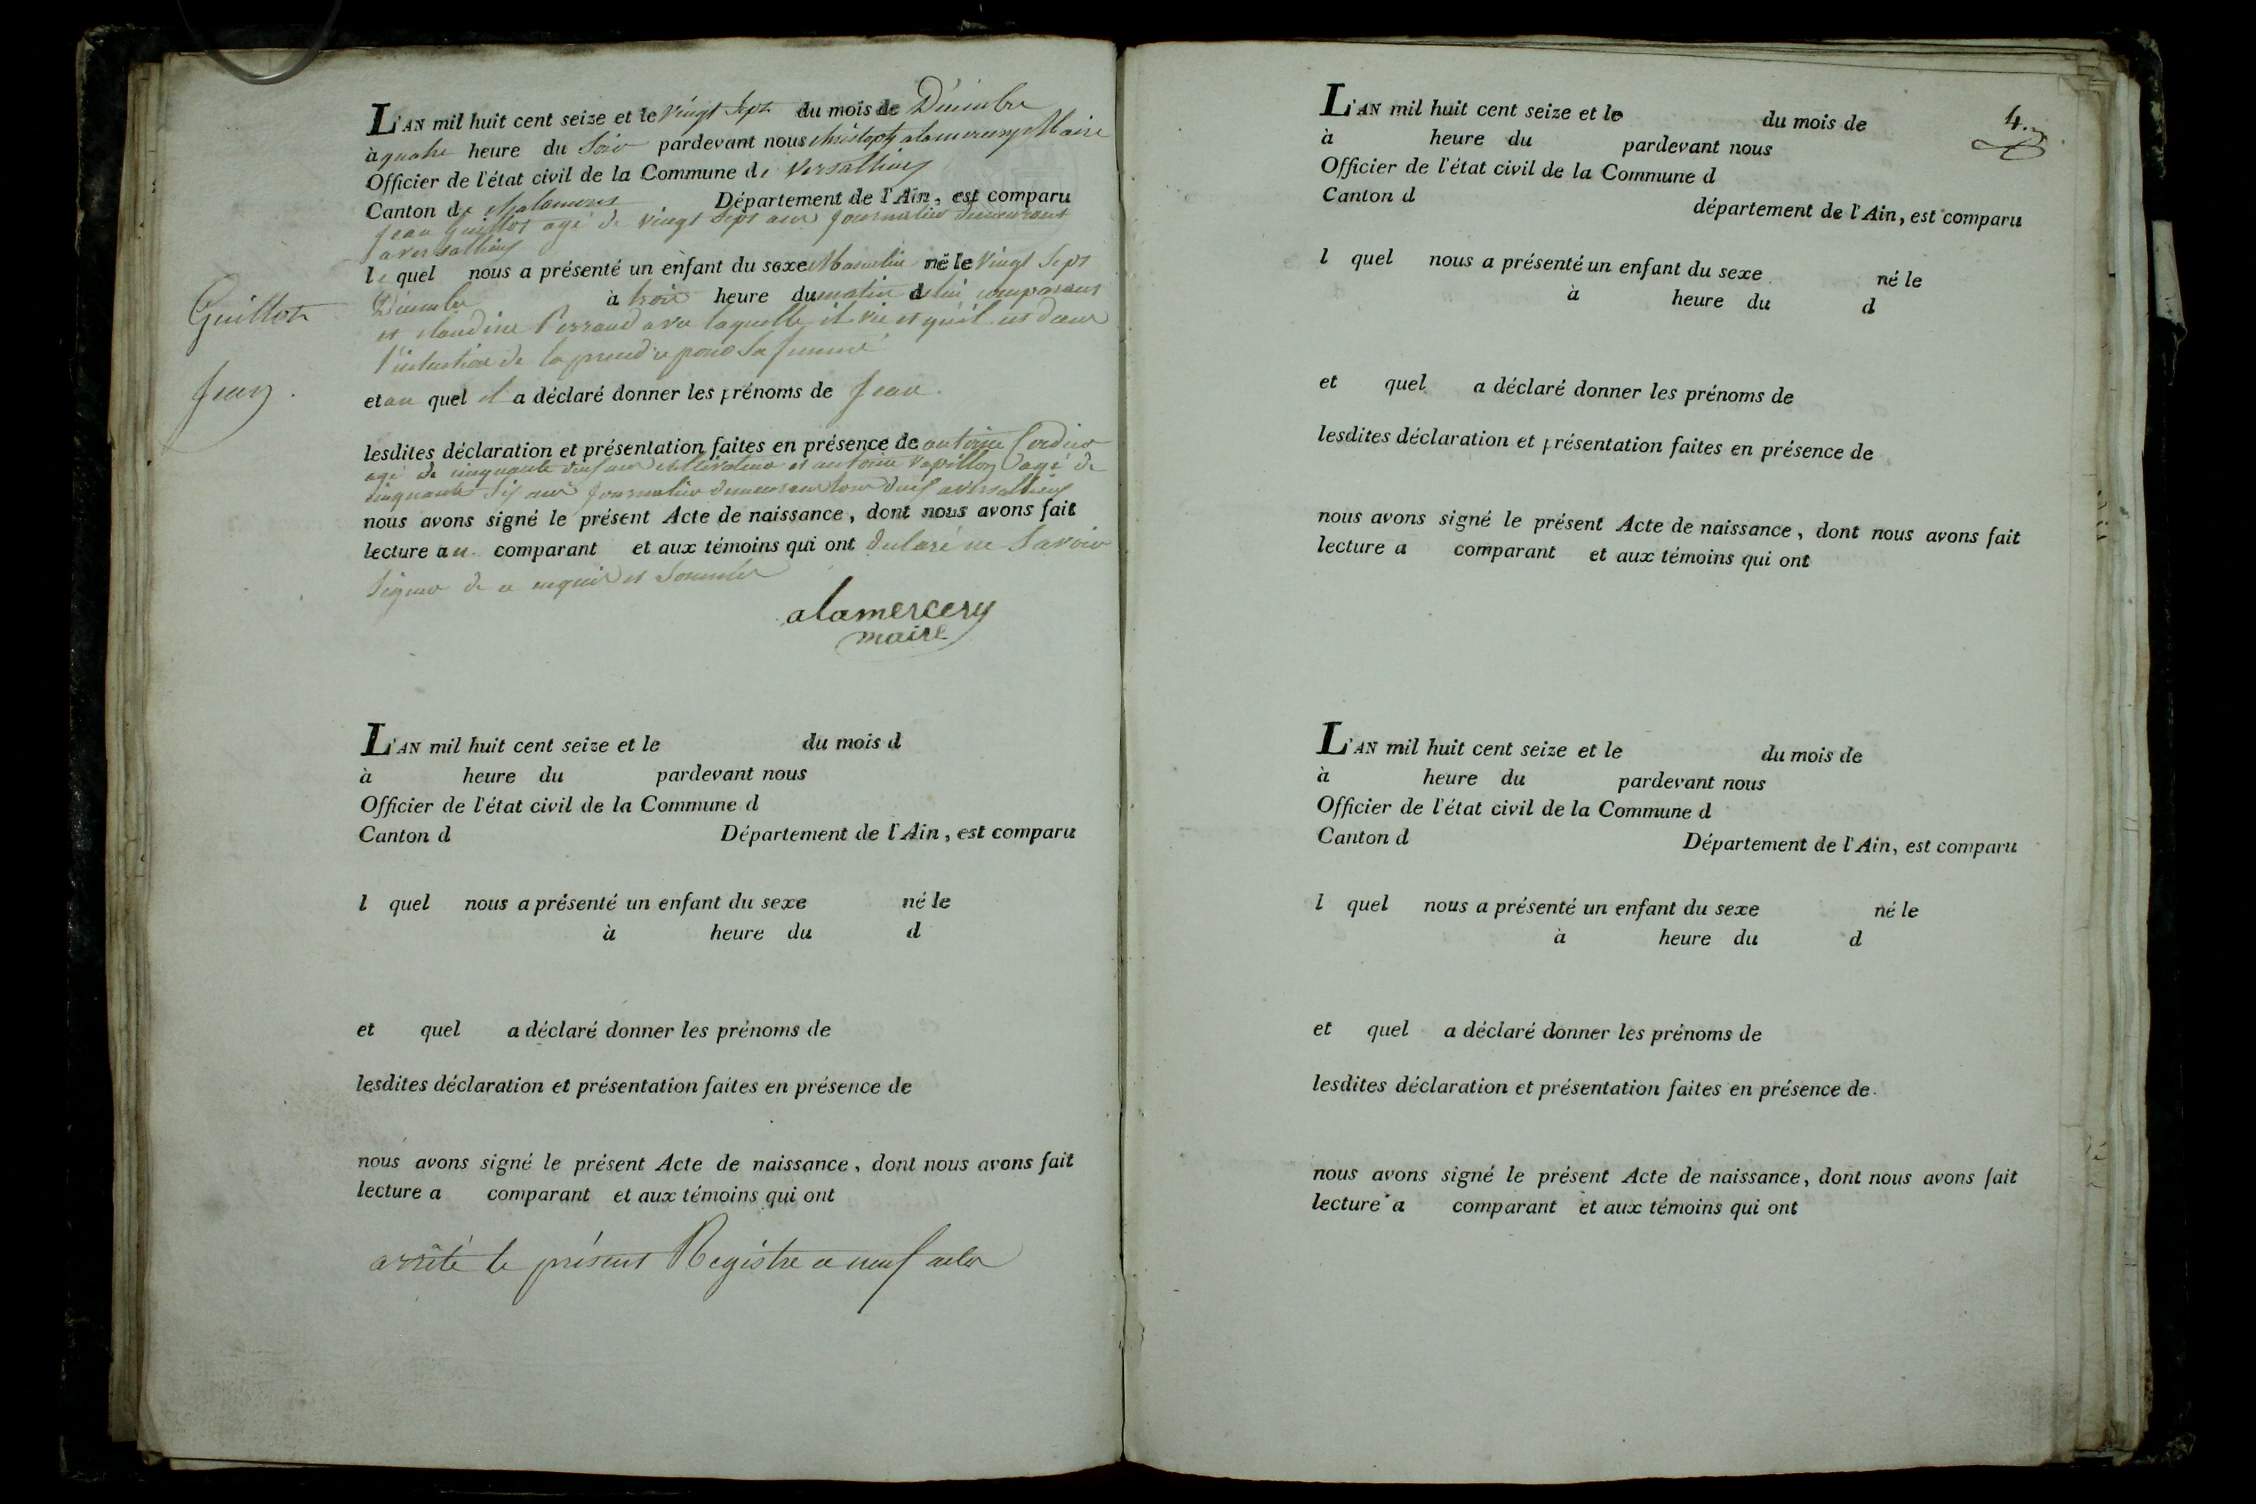 L'AN mil huit cent seize et le vingt sept du mois de Décembre
à quatre heure du Soir pardevant nous christophe alamercery Maire
Officier de l'état civil de la Commune de Versailleux
Canton de chalamont Département de l'Ain, est comparu
jean Guillot agé de vingt sept ans journalier demeurant
a versailleux
le quel nous a présenté un enfant du sexe Masculin né le vingt sept
Décembre à trois heure du matin de lui comparant
et claudine Perraud avec laquelle il vie et qu'il est dans
l'intention de la prendre pour sa femme
et au quel il a déclaré donner les prénoms de jean.
lesdites déclaration et présentation faites en présence de antoine Cordier
agé de cinquante neuf ans cultivateur et antoine Papillon agé de
cinquante six ans journalier demeurant tous deux a versailleux
nous avons signé le présent Acte de naissance, dont nous avons fait
lecture au comparant et aux témoins qui ont déclaré ne savoir
signer de ce enquis et sommés
alamercery
maire
Guillot
jean.
L'AN mil huit cent seize et le du mois d
à heure du pardevant nous
Officier de l'état civil de la Commune d
Canton d Département de l'Ain, est comparu
l quel nous a présenté un enfant du sexe né le
à heure du d
et quel a déclaré donner les prénoms de
lesdites déclaration et présentation faites en présence de
nous avons signé le présent Acte de naissance, dont nous avons fait
lecture a comparant et aux témoins qui ont
arrêté le présent Registre a neuf actes
4.
L'AN mil huit cent seize et le du mois de
à heure du pardevant nous
Officier de l'état civil de la Commune d
Canton d département de l'Ain, est comparu
l quel nous a présenté un enfant du sexe né le
à heure du d
et quel a déclaré donner les prénoms de
lesdites déclaration et présentation faites en présence de
nous avons signé le présent Acte de naissance, dont nous avons fait
lecture a comparant et aux témoins qui ont
L'AN mil huit cent seize et le du mois de
à heure du pardevant nous
Officier de l'état civil de la Commune d
Canton d Département de l'Ain, est comparu
l quel nous a présenté un enfant du sexe né le
à heure du d
et quel a déclaré donner les prénoms de
lesdites déclaration et présentation faites en présence de
nous avons signé le présent Acte de naissance, dont nous avons fait
lecture a comparant et aux témoins qui ont